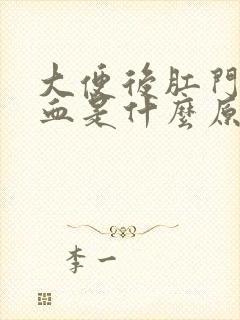 大便後肛門
血是什麼原
李一